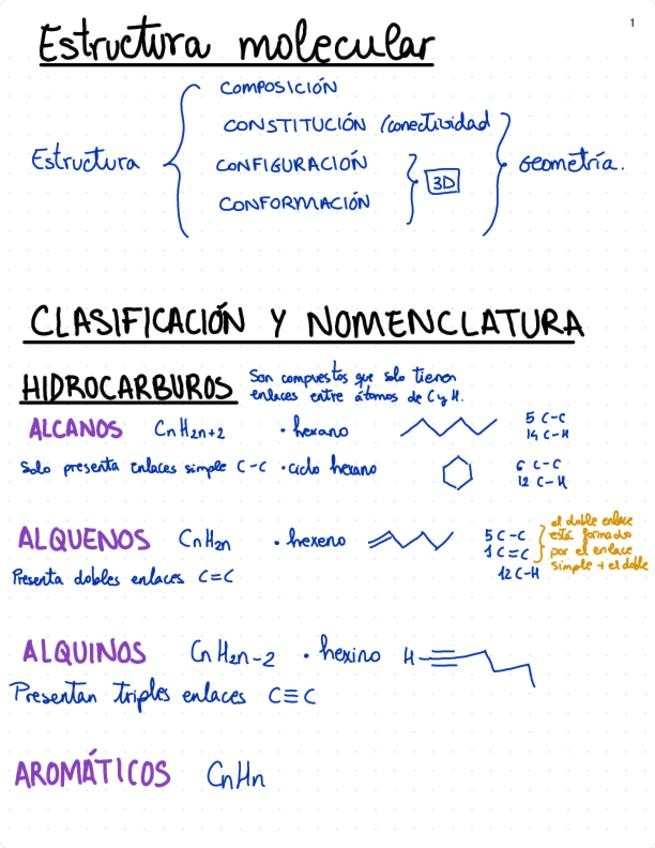 1
Estructura molecular
COMPOSICIÓN
CONSTITUCIÓN (conectividad
Estructura
CONFIGURACIÓN
3D
Geometría.
CONFORMACIÓN
CLASIFICACIÓN Y NOMENCLATURA
HIDROCARBUROS Son compuestos que solo tienen
enlaces entre átomos de C y H.
ALCANOS CnH2n+2 · hexano 5 C-C
14 C-H
Solo presenta enlaces simple C-C · ciclo hexano 6 C-C
12 C-H
ALQUENOS CnH2n · hexeno 5 C-C
1 C=C
12 C-H
el doble enlace
está formado
por el enlace
simple + el doble
Presenta dobles enlaces C=C
ALQUINOS CnH2n-2 · hexino H
Presentan triples enlaces C≡C
AROMÁTICOS CnHn